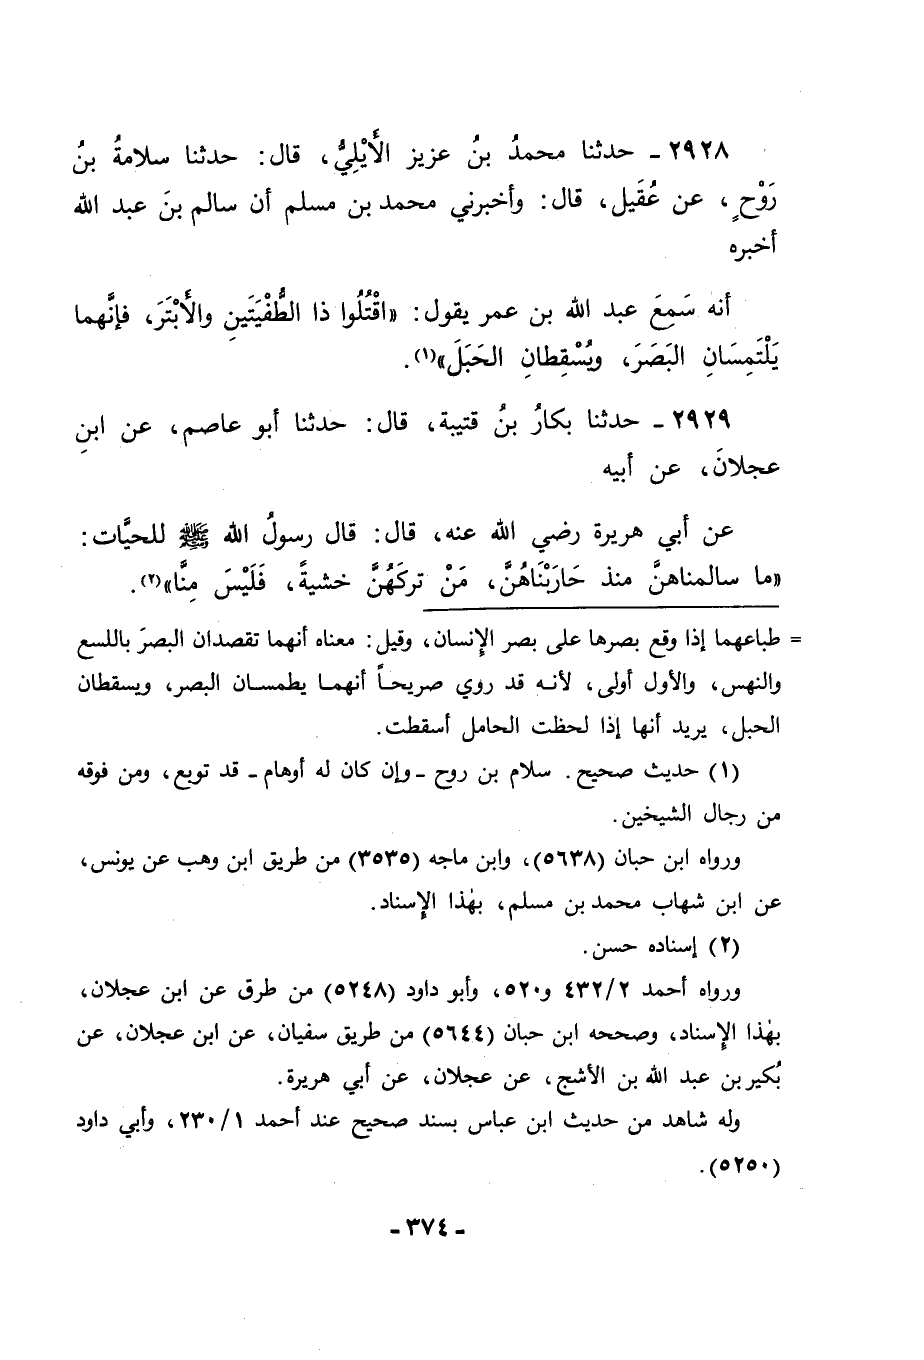 ٢٩٢٨ ـ حدثنا محمدُ بنُ عزيز الأَيْلِيُّ، قال: حدثنا سلامةُ بنُ
رَوْحٍ، عن عُقَيل، قال: وأخبرني محمد بن مسلم أن سالم بنَ عبد الله
أخبره
أنه سَمِعَ عبد الله بن عمر يقول: «اقْتُلُوا ذا الطُّفْيَتَينِ والأَبْتَرَ، فإنَّهما
يَلْتَمِسَانِ البَصَرَ، ويُسْقِطانِ الحَبَلَ»(١).
٢٩٢٩ ـ حدثنا بكارُ بنُ قتيبة، قال: حدثنا أبو عاصم، عن ابنِ
عجلانَ، عن أبيه
عن أبي هريرة رضي الله عنه، قال: قال رسولُ الله ﷺ للحيَّات:
«ما سالمناهنَّ منذ حَارَبْنَاهُنَّ، مَنْ تركَهُنَّ خشيةً، فَلَيْسَ مِنَّا»(٢).
= طباعهما إذا وقع بصرها على بصر الإنسان، وقيل: معناه أنهما تقصدان البصرَ باللسع
والنهس، والأول أولى، لأنه قد روي صريحاً أنهما يطمسان البصر، ويسقطان
الحبل، يريد أنها إذا لحظت الحامل أسقطت.
(١) حديث صحيح. سلام بن روح ـ وإن كان له أوهام ـ قد توبع، ومن فوقه
من رجال الشيخين.
ورواه ابن حبان (٥٦٣٨)، وابن ماجه (٣٥٣٥) من طريق ابن وهب عن يونس،
عن ابن شهاب محمد بن مسلم، بهٰذا الإسناد.
(٢) إسناده حسن.
ورواه أحمد ٤٣٢/٢ و٥٢٠، وأبو داود (٥٢٤٨) من طرق عن ابن عجلان،
بهٰذا الإسناد، وصححه ابن حبان (٥٦٤٤) من طريق سفيان، عن ابن عجلان، عن
بُكير بن عبد الله بن الأشج، عن عجلان، عن أبي هريرة.
وله شاهد من حديث ابن عباس بسند صحيح عند أحمد ٢٣٠/١، وأبي داود
(٥٢٥٠).
ـ ٣٧٤ ـ